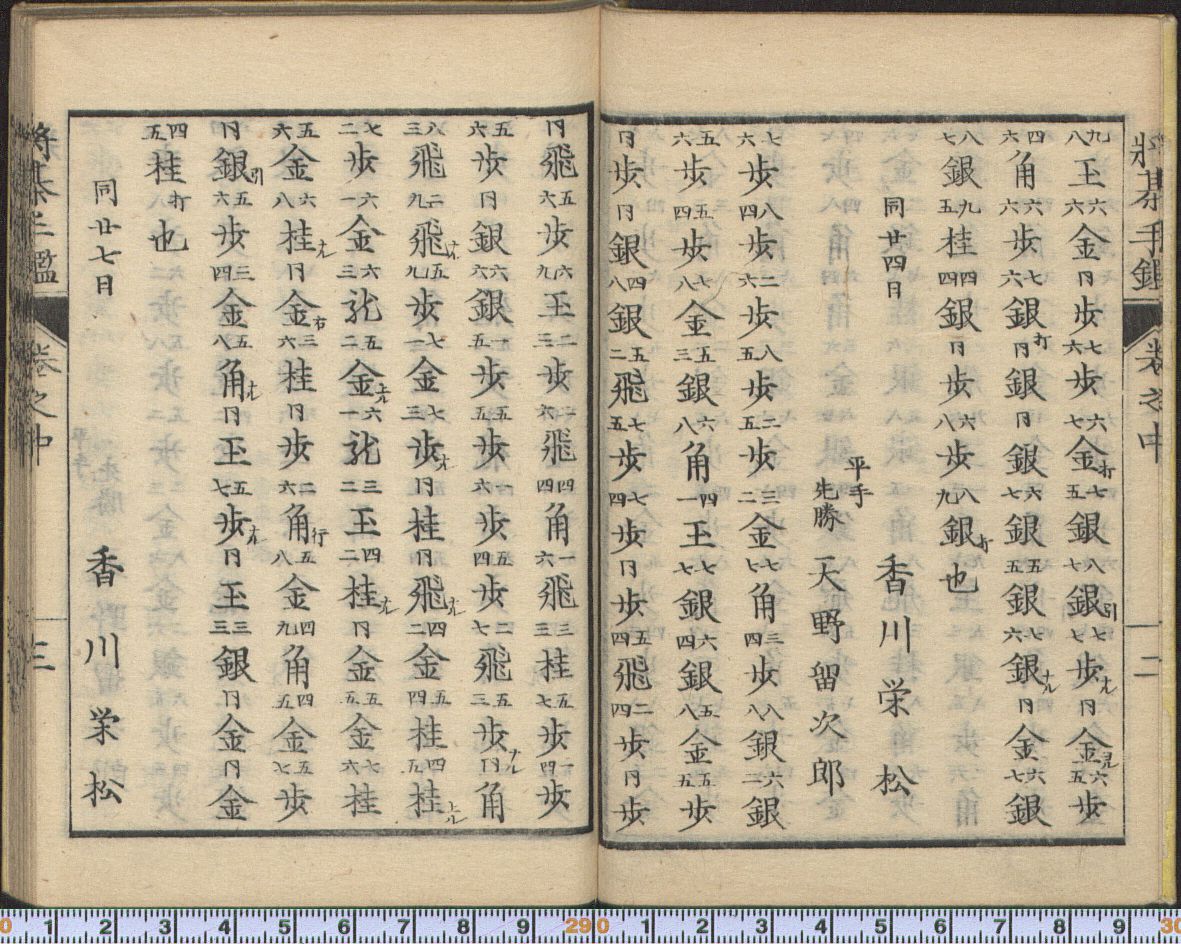 将棊手鑑 卷之中 二
九八玉六六金同歩七六歩六七金打七五銀八七銀引七七歩ナル同金直六五歩
四六角六六歩七六銀打同銀同銀六七銀五五銀六六銀ナル同金六七銀
八七銀九五桂四四銀同歩六八歩八九銀打也
同廿四日 香川栄松
平手先勝 天野留次郎
七六歩八四歩二六歩八五歩二五歩三二金七七角三四歩八八銀六二銀
五六歩五四歩七八金五三銀六八角四一玉七七銀六四銀五八金五五歩
同歩同銀四八銀五二飛七五歩七四歩同歩五四飛二四歩同歩
同飛五六歩六九玉二三歩二六飛四四角一六飛三三桂五七歩一四歩
五六歩同銀六六銀一五歩五五歩一六歩五四歩二七飛五三歩ナル同角
八三飛二九飛ナル五九歩七一金七三歩ナル同桂同飛ナル四二金五四桂四五桂上ル
七二歩六一金六三龍五二金上ル六一龍三二玉四二桂ナル同金五五金七六桂
五六金六八桂ナル同金右三六桂同歩二六角行五八金四九角四五金五七歩
同銀引五六歩三四金五八角ナル同玉五七歩ナル同玉三三銀同金同金
四五桂打也
同廿七日 香川栄松
将棊手鑑 卷之中 三
0 1 2 3 4 5 6 7 8 9 290 1 2 3 4 5 6 7 8 9 30